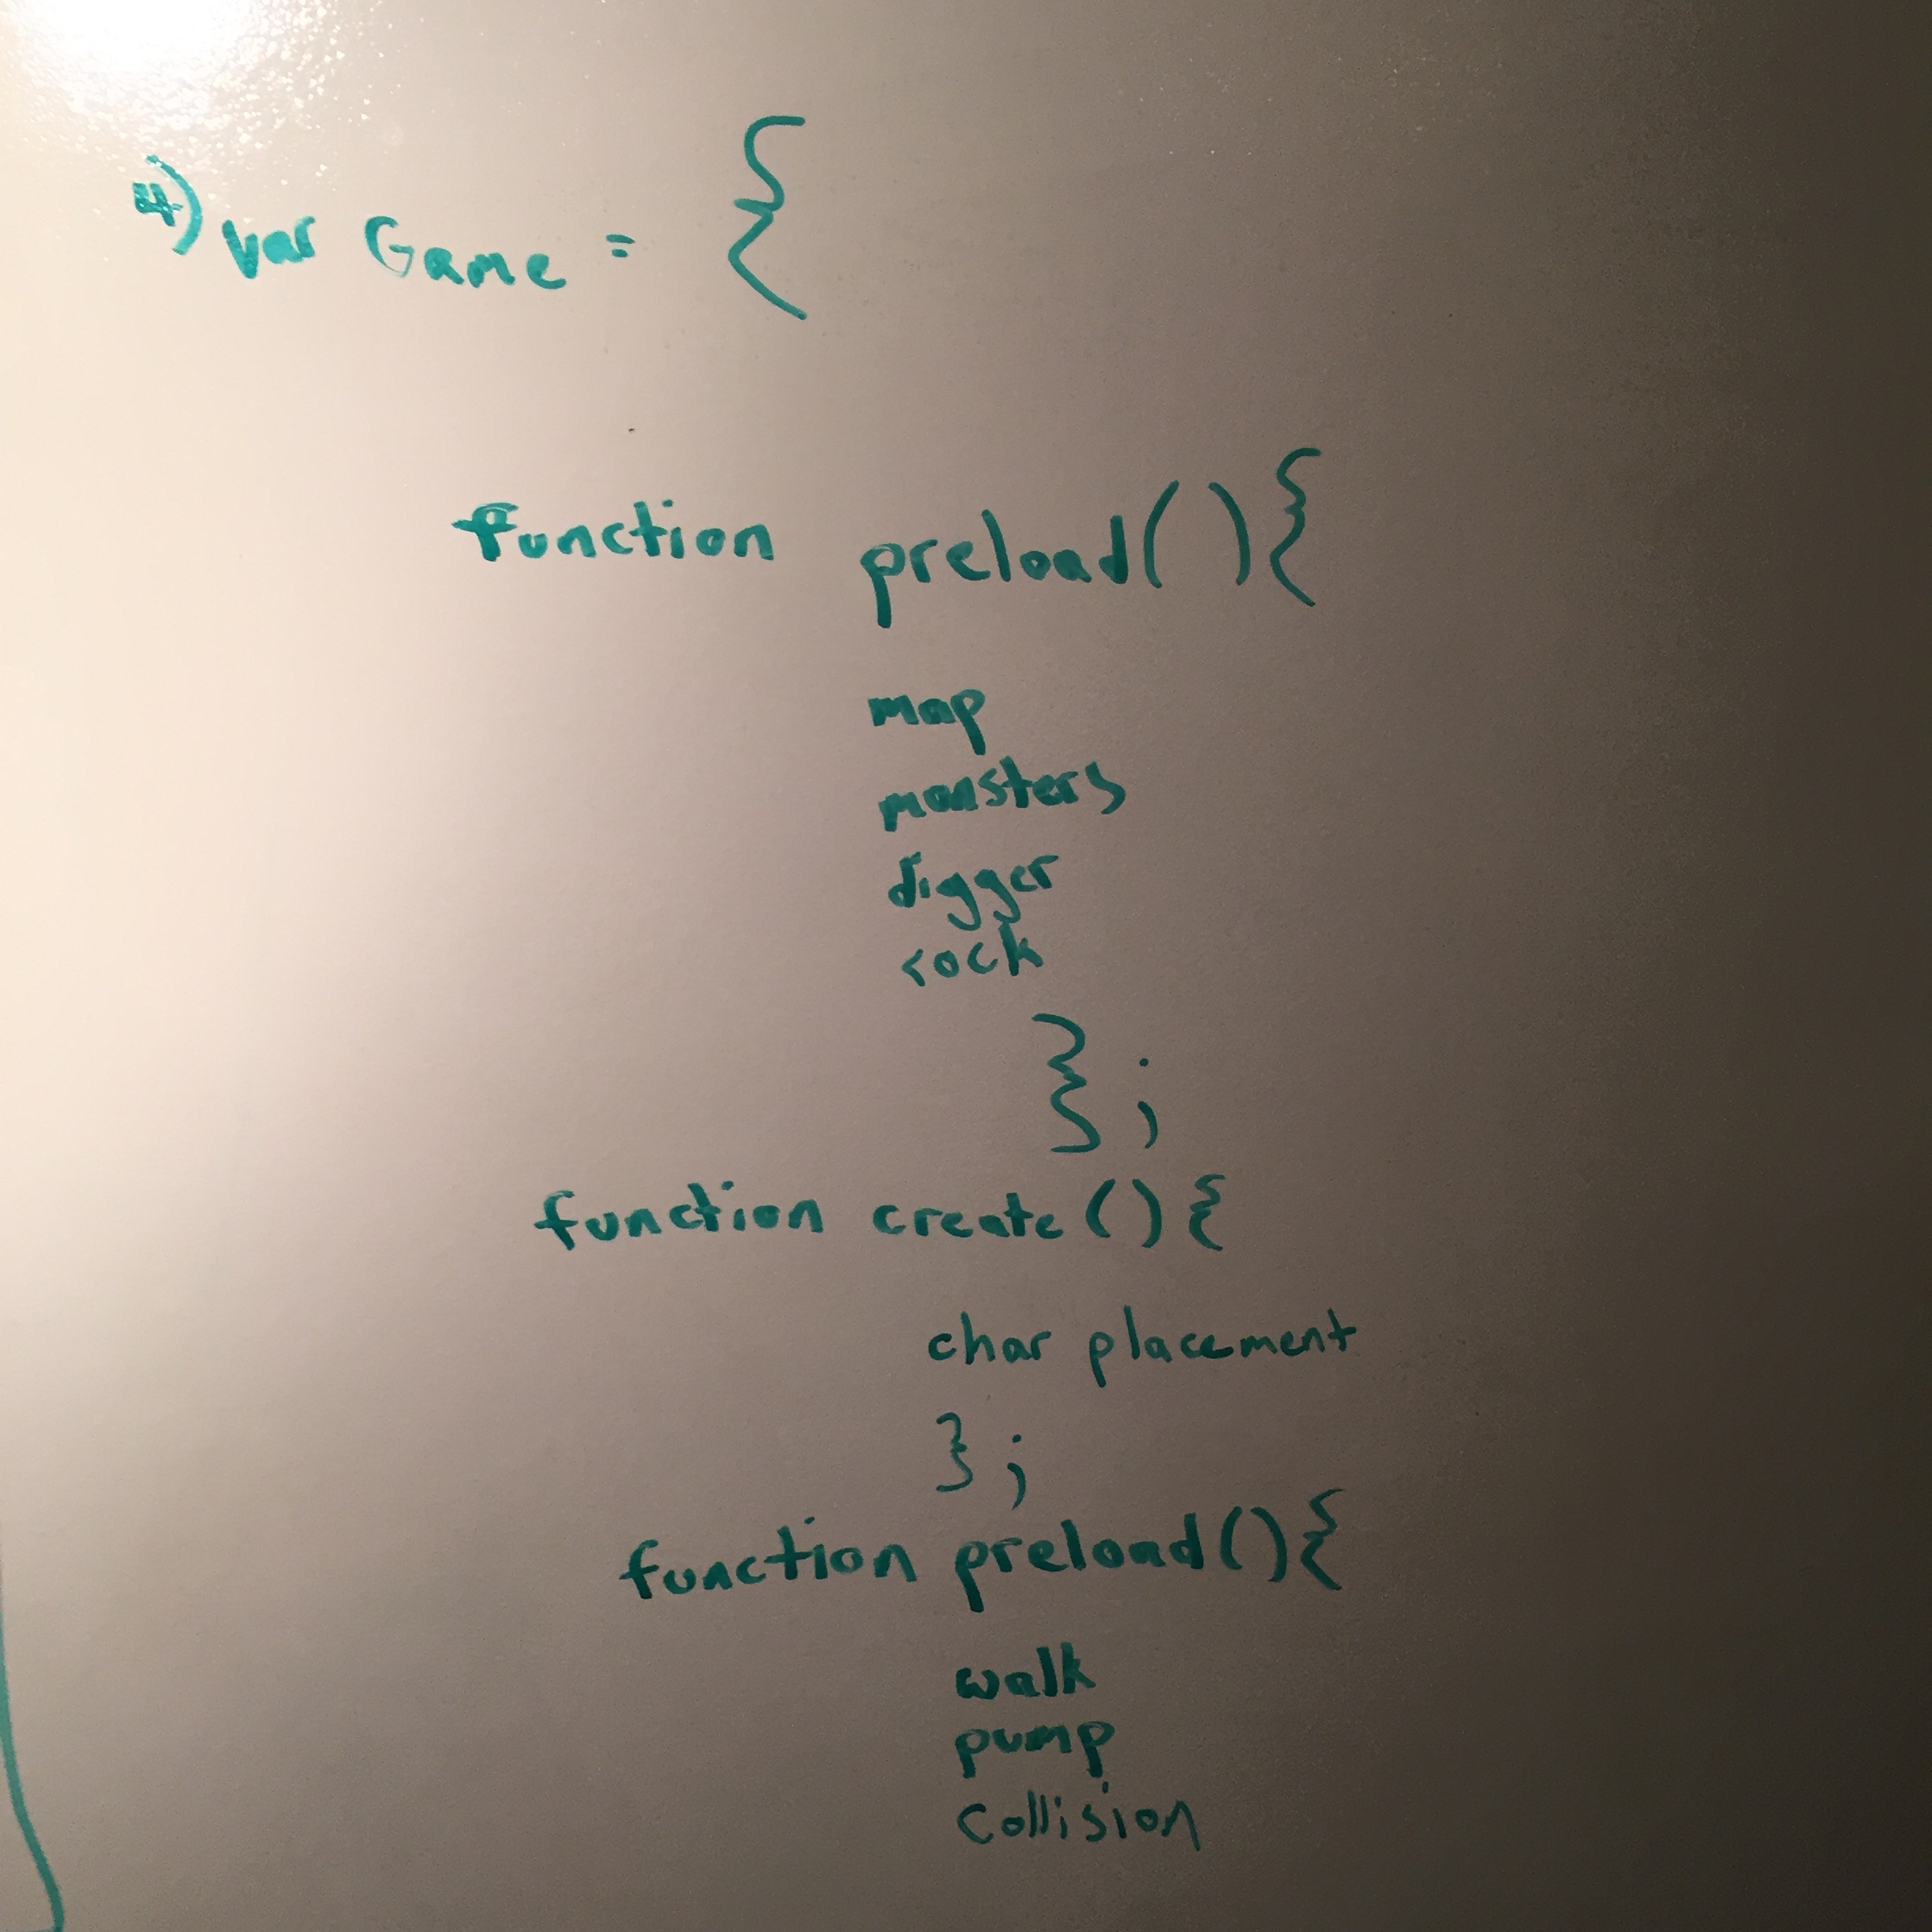 4) var Game = {
function preload(){
map
monsters
digger
rock
};
function create(){
char placement
};
function preload(){
walk
pump
Collision